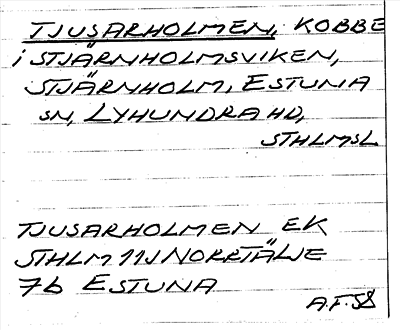 TJUSARHOLMEN, KOBBE
i STJÄRNHOLMSVIKEN,
STJÄRNHOLM, ESTUNA
SN, LYHUNDRA HD,
STHLMSL
TJUSARHOLMEN EK
STHLM 11J NORRTÄLJE
7b ESTUNA
A.F. 58